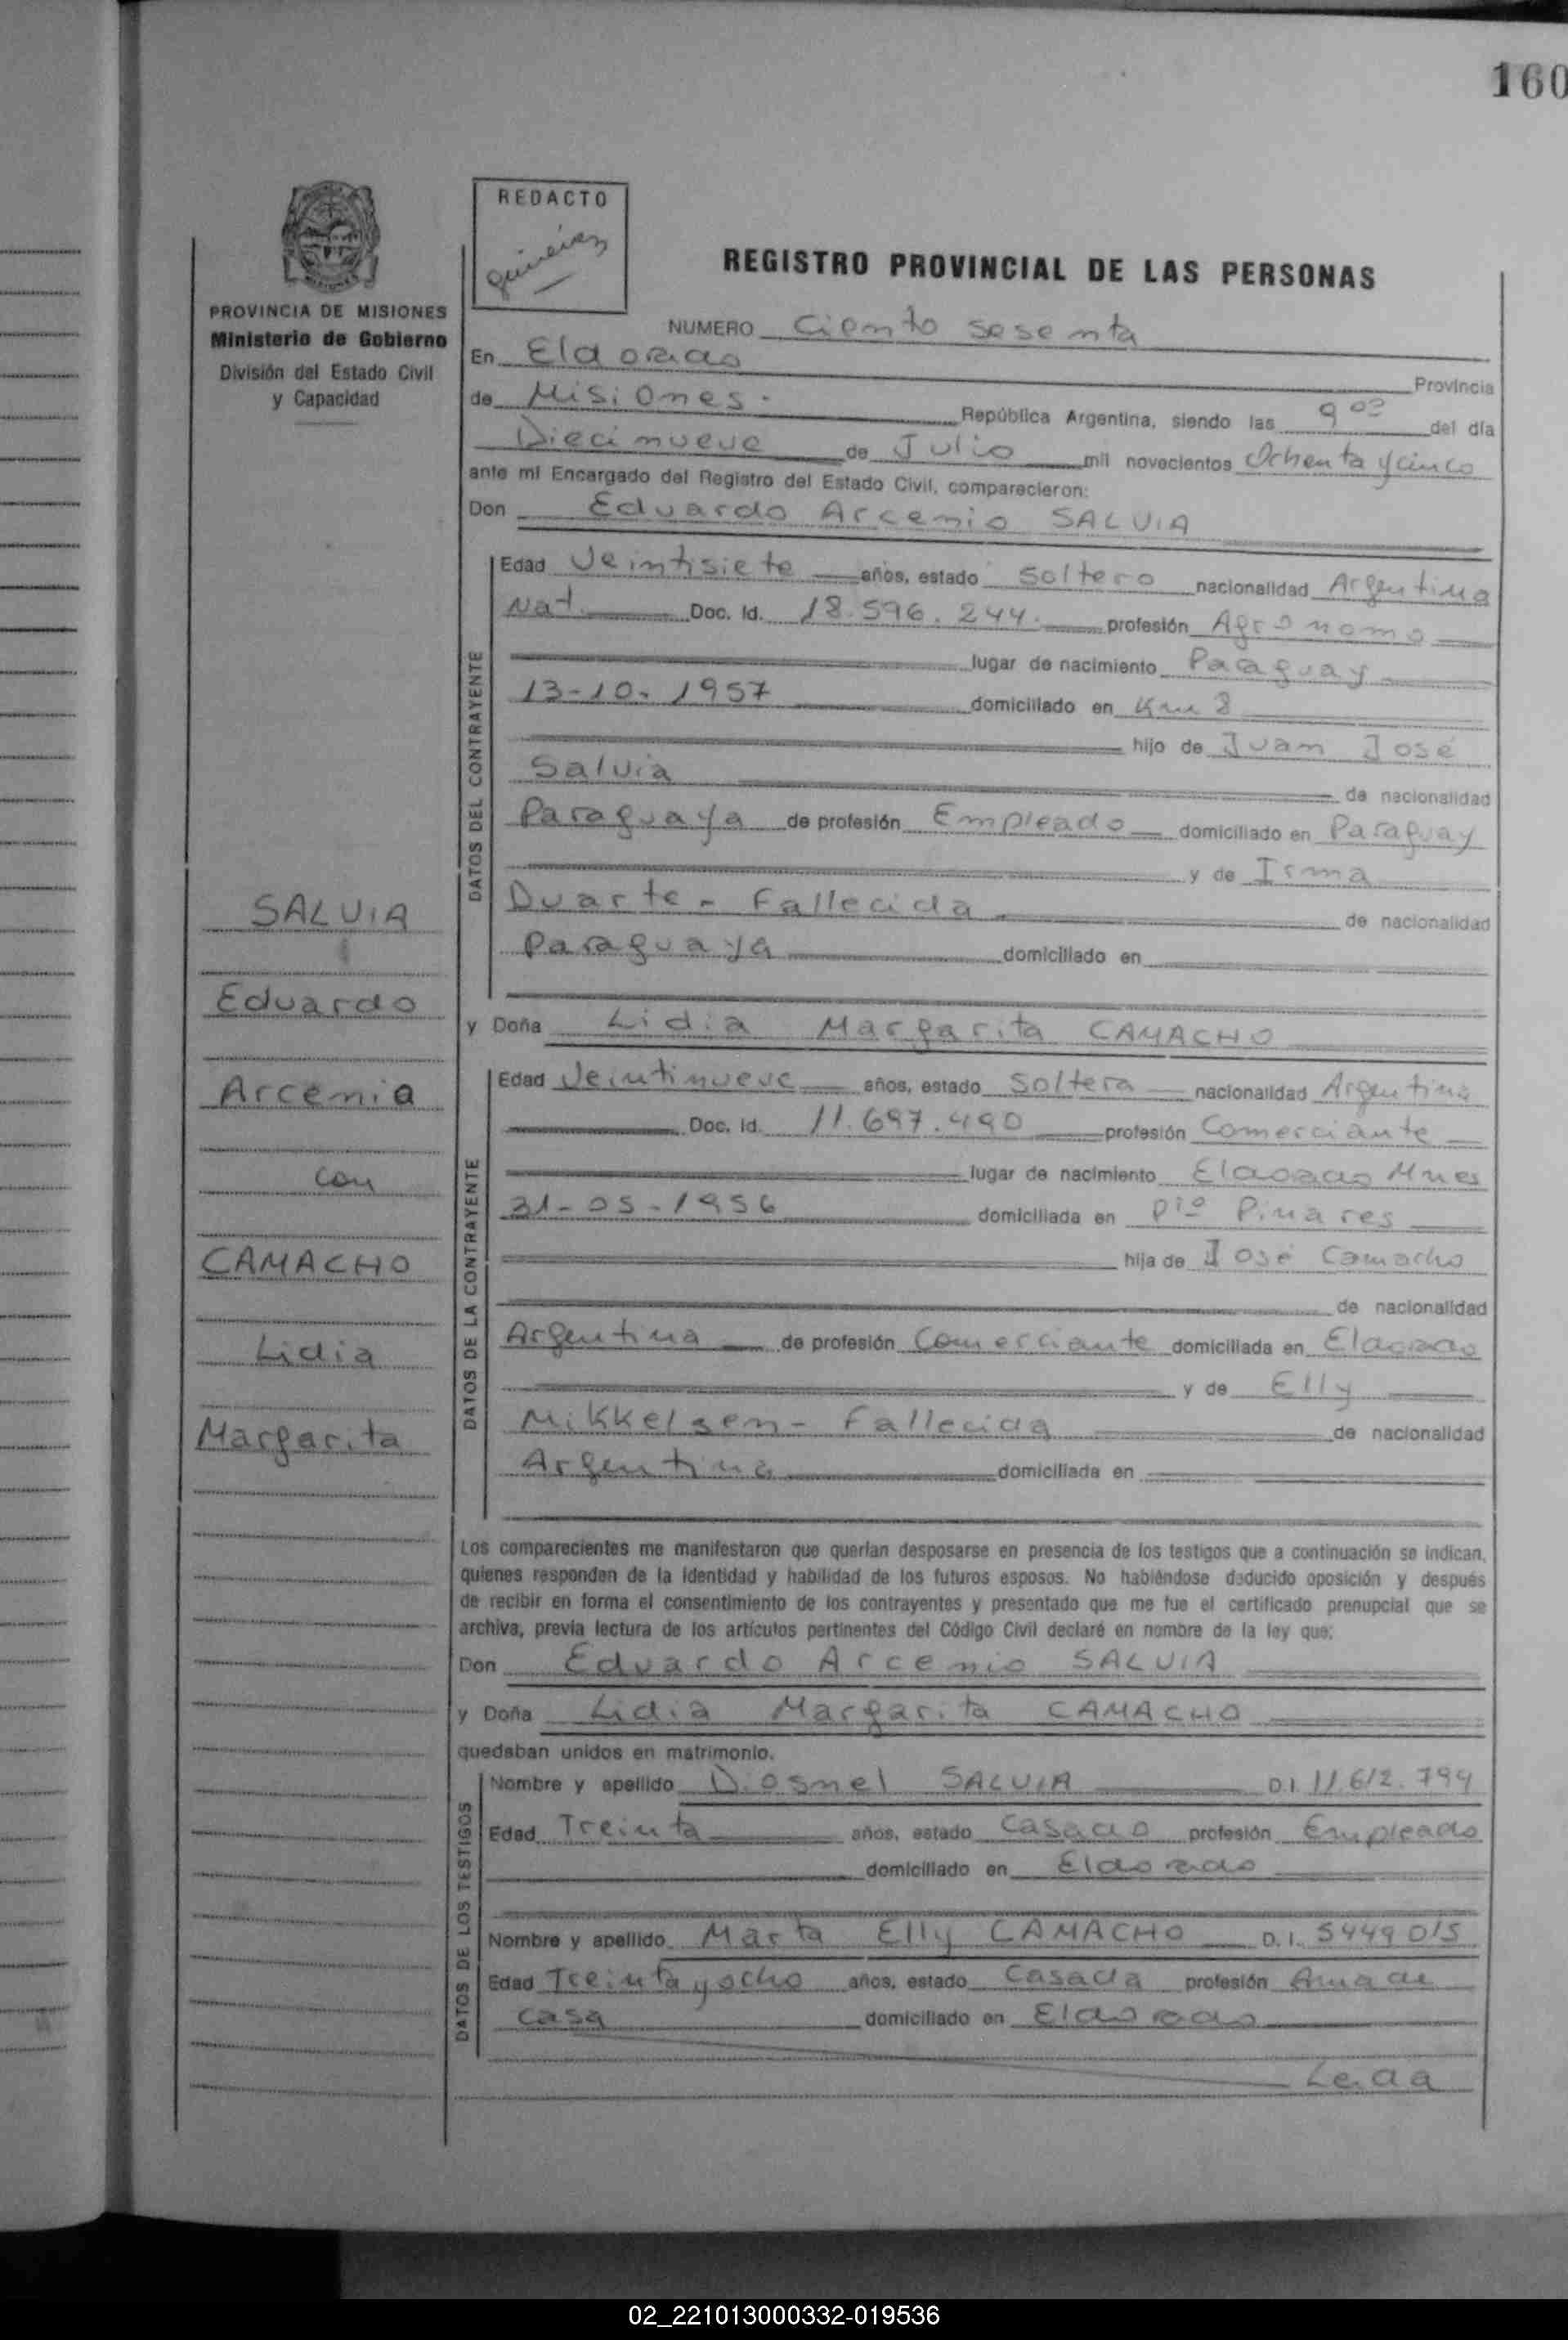 160
REDACTO
REGISTRO PROVINCIAL DE LAS PERSONAS
PROVINCIA DE MISIONES
Ministerio de Gobierno
División del Estado Civil
y Capacidad
NUMERO Ciento sesenta
En Eldorado Provincia
de Misiones. República Argentina, siendo las 9 00 del día
Diecinueve de Julio mil novecientos Ochenta y cinco
ante mí Encargado del Registro del Estado Civil, comparecieron:
Don Eduardo Arcenio SALVIA
DATOS DEL CONTRAYENTE
Edad Veintisiete años, estado Soltero nacionalidad Argentina
Nat. Doc. Id. 18.596.244. profesión Agronomo
lugar de nacimiento Paraguay
13-10-1957 domiciliado en Km 8
hijo de Juan José
Salvia de nacionalidad
Paraguaya de profesión Empleado domiciliado en Paraguay
y de Irma
Duarte - Fallecida de nacionalidad
Paraguaya domiciliado en
y Doña Lidia Margarita CAMACHO
DATOS DE LA CONTRAYENTE
Edad Veintinueve años, estado Soltera nacionalidad Argentina
Doc. Id. 11.697.490 profesión Comerciante
lugar de nacimiento Eldorado Mnes
31-05-1956 domiciliada en Pio Pinares
hija de José Camacho
de nacionalidad
Argentina de profesión Comerciante domiciliada en Eldorado
y de Elly
Mikkelsen - Fallecida de nacionalidad
Argentina domiciliada en
SALVIA
Eduardo
Arcenio
con
CAMACHO
Lidia
Margarita
Los comparecientes me manifestaron que querían desposarse en presencia de los testigos que a continuación se indican,
quienes responden de la identidad y habilidad de los futuros esposos. No habiéndose deducido oposición y después
de recibir en forma el consentimiento de los contrayentes y presentado que me fue el certificado prenupcial que se
archiva, previa lectura de los artículos pertinentes del Código Civil declaré en nombre de la ley que:
Don Eduardo Arcenio SALVIA
y Doña Lidia Margarita CAMACHO
quedaban unidos en matrimonio.
DATOS DE LOS TESTIGOS
Nombre y apellido Diosnel SALVIA D.I. 11.612.794
Edad Treinta años, estado Casado profesión Empleado
domiciliado en Eldorado
Nombre y apellido Marta Elly CAMACHO D.I. 5449015
Edad Treinta y ocho años, estado Casada profesión Ama de
casa domiciliado en Eldorado
Leida
02_221013000332-019536